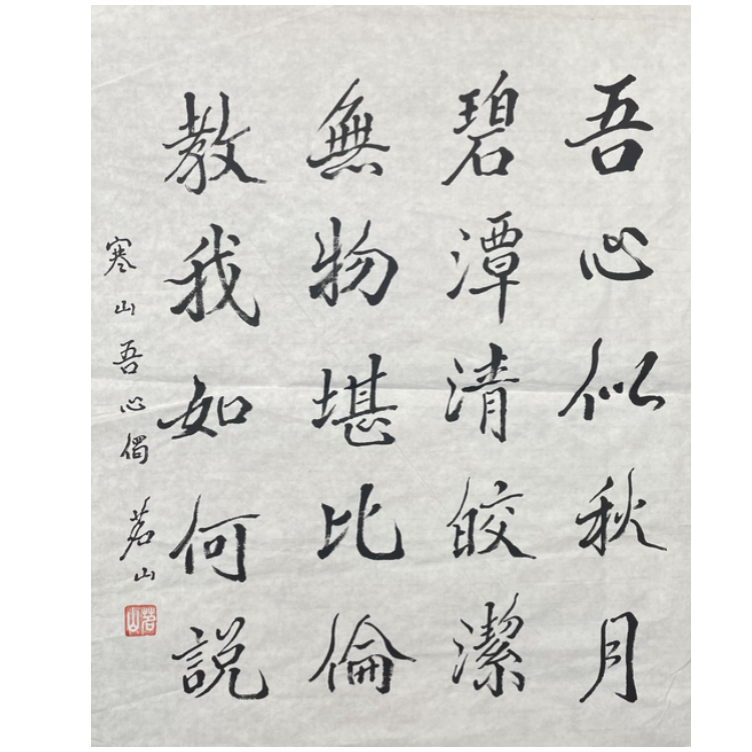 吾心似秋月
碧潭清皎潔
無物堪比倫
教我如何説
寒山吾心偈
茗山
茗山